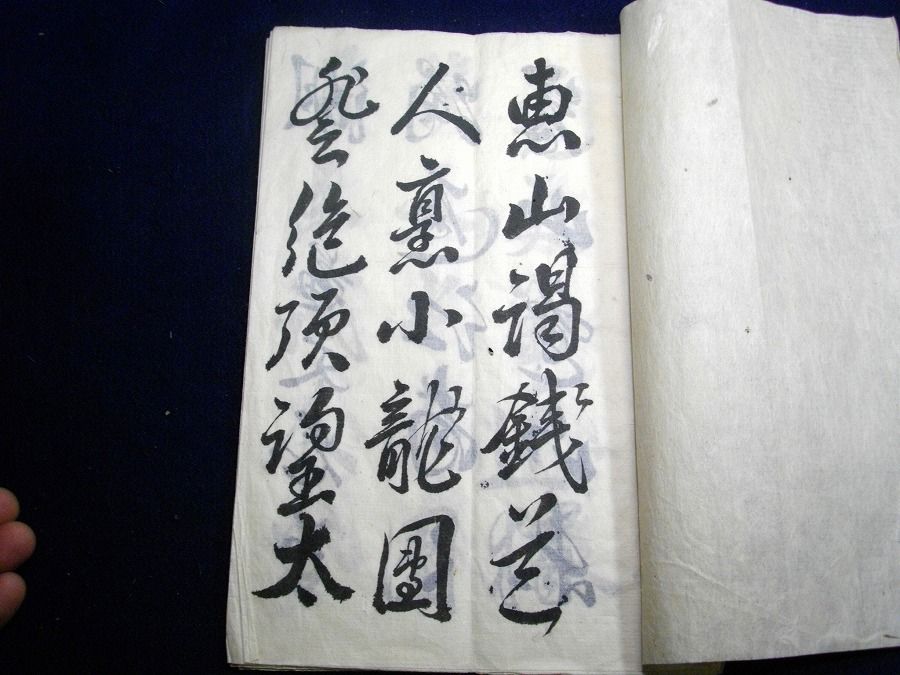 恵山謁銭道
人烹小龍團
登絶頂望太